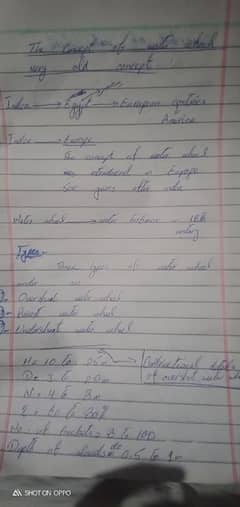 The Concept of water wheel
very old concept
India → Egypt → European countries
America
India → Europe
The concept of water wheel
was introduced in Europe
years after India
Water wheel → water turbine - 18th
century
Types:-
Three types of water wheel
under
- Overshot water wheel
- Breast water wheel
- Undershot water wheel
H = 10 to 25m
of overshot water wheel
D = 3 to 20m
N = 4 to 8
No: of buckets = 8 to 100
Depth of = 0.5 to 1m
SHOT ON OPPO